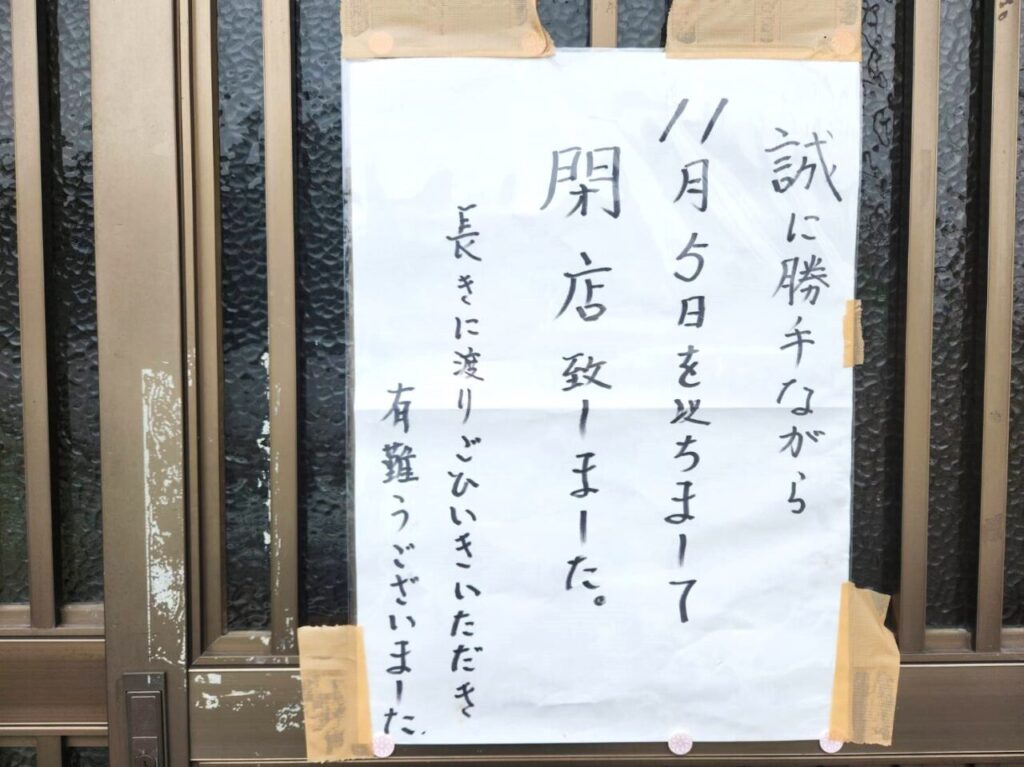 誠に勝手ながら
11月5日を以ちまして
閉店致しました。
長きに渡りごひいきいただき
有難うございました。